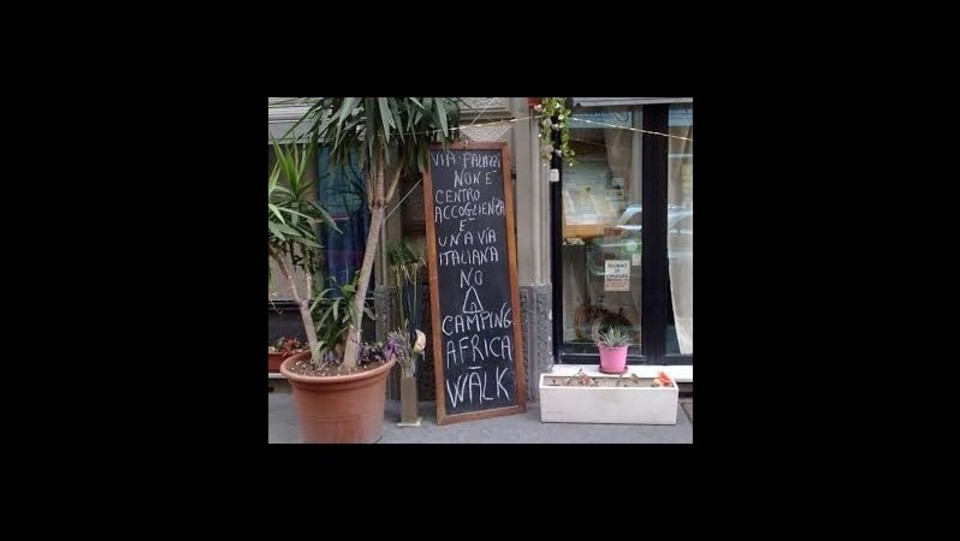 VIA PALAZZI
NON E'
CENTRO
ACCOGLIENZA
E'
UNA VIA
ITALIANA
NO
CAMPING
AFRICA
WALK